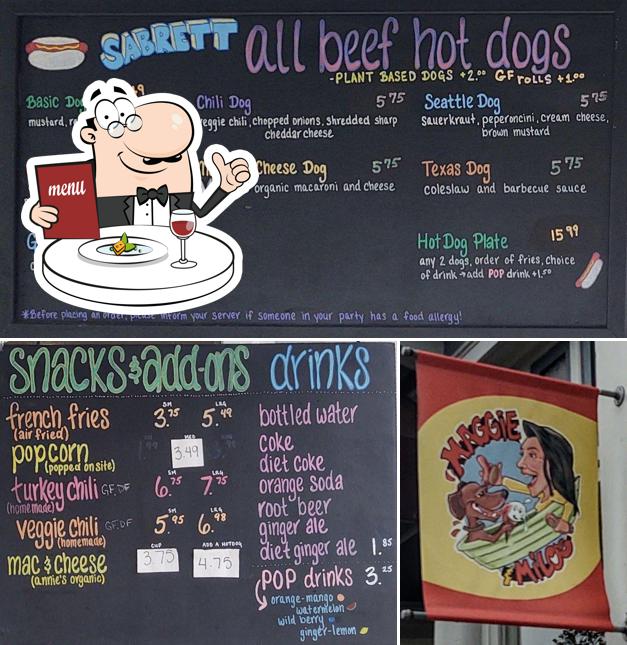 SABRETT all beef hot dogs
-PLANT BASED DOGS +2.00 GF rolls +1.00
Basic Dog
mustard,
Chili Dog 5 75
veggie chili, chopped onions, shredded sharp
cheddar cheese
Seattle Dog 5 75
sauerkraut, peperoncini, cream cheese,
brown mustard
Cheese Dog 5 75
organic macaroni and cheese
Texas Dog 5 75
coleslaw and barbecue sauce
menu
Hot Dog Plate 15 99
any 2 dogs, order of fries, choice
of drink → add POP drink +1.50
*Before placing an order, please inform your server if someone in your party has a food allergy!
snacks & add-ons
SM LRG
french fries 3.75 5.49
(air fried)
MED
popcorn 3.49
(popped on site)
SM LRG
turkey chili GF, DF 6.75 7.75
(homemade)
SM LRG
veggie chili GF, DF 5.95 6.98
(homemade)
CUP ADD A HOTDOG
mac & cheese 3.75 4.75
(annie's organic)
drinks
bottled water
coke
diet coke
orange soda
root beer
ginger ale
diet ginger ale 1.85
POP drinks 3.25
orange-mango
watermelon
wild berry
ginger-lemon
MAGGIE
& MILOS